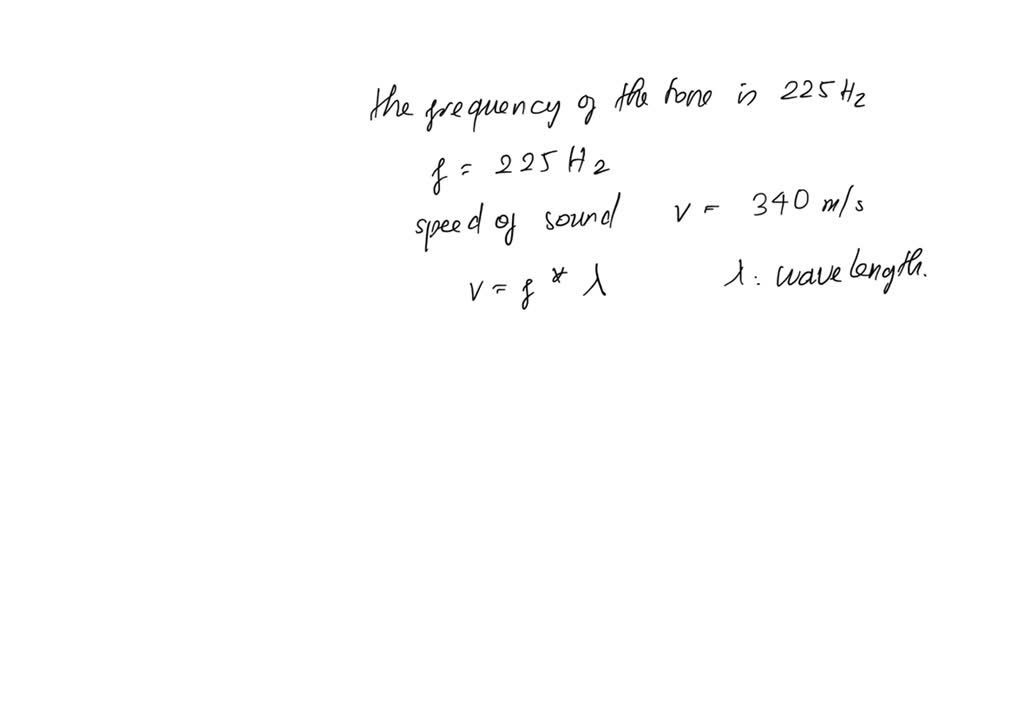 the frequency of the tone is 225 Hz
f = 225 Hz
speed of sound v = 340 m/s
v = f * λ λ: wavelength.